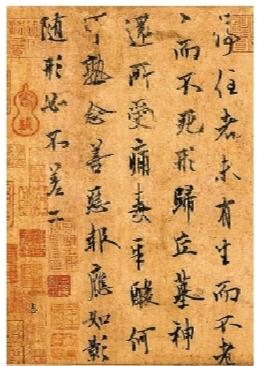 得住者未有生而不老
〻而不死形歸丘墓神
還所受痛毒辛酸何
可熟念善惡報應如影
隨形必不差二